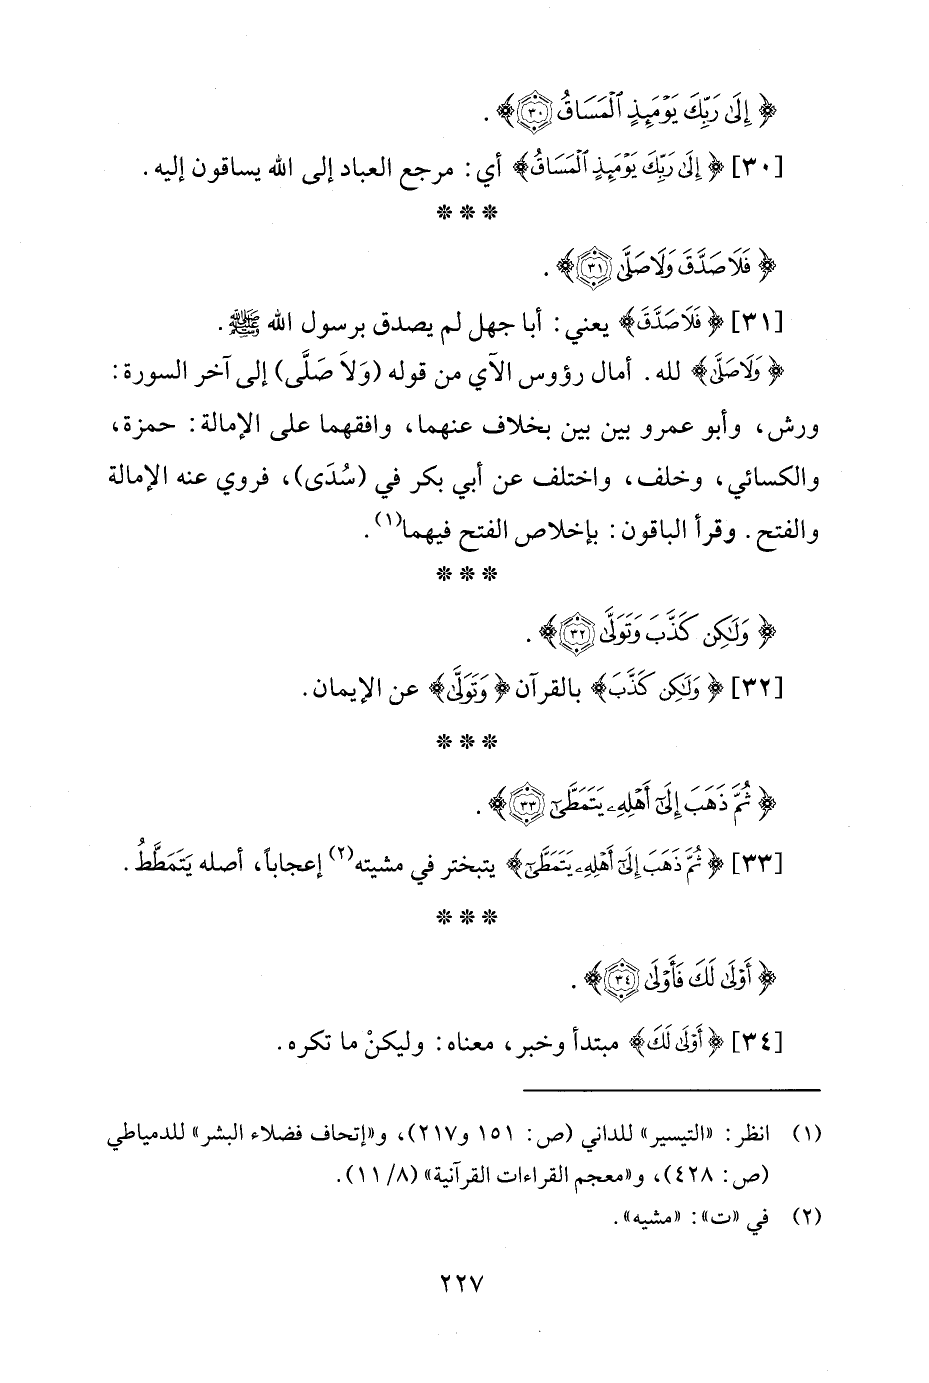 ﴿ إِلَىٰ رَبِّكَ يَوۡمَئِذٍ ٱلۡمَسَاقُ ٣٠ ﴾ .
[٣٠] ﴿ إِلَىٰ رَبِّكَ يَوۡمَئِذٍ ٱلۡمَسَاقُ ﴾ أي: مرجع العباد إلى الله يساقون إليه.
* * *
﴿ فَلَا صَدَّقَ وَلَا صَلَّىٰ ٣١ ﴾ .
[٣١] ﴿ فَلَا صَدَّقَ ﴾ يعني: أبا جهل لم يصدق برسول الله ﷺ.
﴿ وَلَا صَلَّىٰ ﴾ لله. أمال رؤوس الآي من قوله (وَلاَ صَلَّى) إلى آخر السورة:
ورش، وأبو عمرو بين بين بخلاف عنهما، وافقهما على الإمالة: حمزة،
والكسائي، وخلف، واختلف عن أبي بكر في (سُدَى)، فروي عنه الإمالة
والفتح. وقرأ الباقون: بإخلاص الفتح فيهما(١).
* * *
﴿ وَلَٰكِن كَذَّبَ وَتَوَلَّىٰ ٣٢ ﴾ .
[٣٢] ﴿ وَلَٰكِن كَذَّبَ ﴾ بالقرآن ﴿ وَتَوَلَّىٰ ﴾ عن الإيمان.
* * *
﴿ ثُمَّ ذَهَبَ إِلَىٰٓ أَهۡلِهِۦ يَتَمَطَّىٰٓ ٣٣ ﴾ .
[٣٣] ﴿ ثُمَّ ذَهَبَ إِلَىٰٓ أَهۡلِهِۦ يَتَمَطَّىٰٓ ﴾ يتبختر في مشيته(٢) إعجاباً، أصله يَتَمَطَّطُ.
* * *
﴿ أَوۡلَىٰ لَكَ فَأَوۡلَىٰ ٣٤ ﴾ .
[٣٤] ﴿ أَوۡلَىٰ لَكَ ﴾ مبتدأ وخبر، معناه: وليكنْ ما تكره.
(١) انظر: «التيسير» للداني (ص: ١٥١ و٢١٧)، و«إتحاف فضلاء البشر» للدمياطي
(ص: ٤٢٨)، و«معجم القراءات القرآنية» (٨/ ١١).
(٢) في «ت»: «مشيه».
٢٢٧